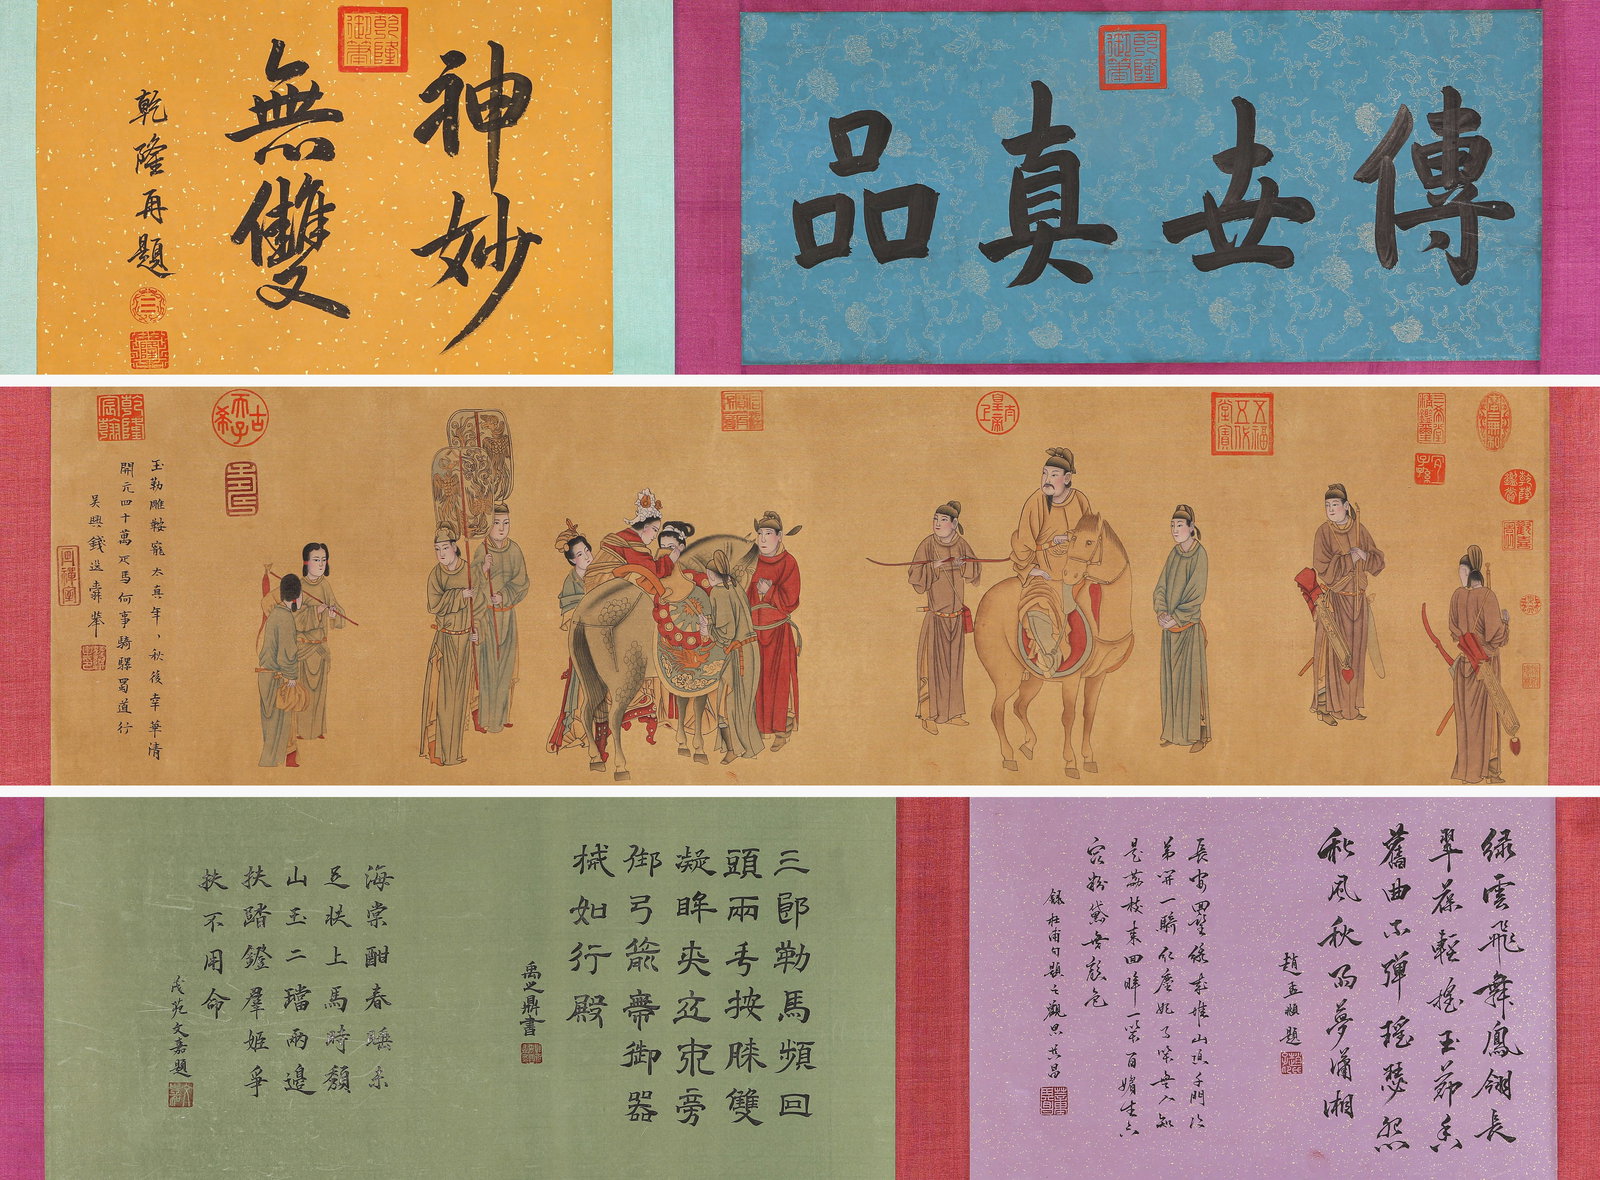 傳世真品
乾隆御筆
神妙
無雙
乾隆再題
乾隆御筆
乾隆鑑賞
三希堂精鑑璽
宜子孫
五福五代堂寶
古希天子
乾隆宸翰
玉勒雕鞍寵太真年、秋後幸華清
開元四十萬疋馬何事騎驛蜀道行
吳興錢選舜舉
綠雲飛舞鳳翎長
翠葆輕搖玉節香
舊曲不彈瑤瑟怨
秋風秋雨夢瀟湘
趙孟頫題
長安回望繡成堆山頂千門次
第開一騎紅塵妃子笑無人知
是荔枝來回眸一笑百媚生六
宮粉黛無顏色
錄杜甫句題之觀思其昌
三郎勒馬頻回
頭兩手按膝雙
凝眸夾立束旁
御弓箭帶御器
械如行殿
禹之鼎書
海棠酣春睡未
足肢上馬時頹
山玉二璫兩邊
扶踏鐙羣姬爭
扶不用命
茂苑文嘉題